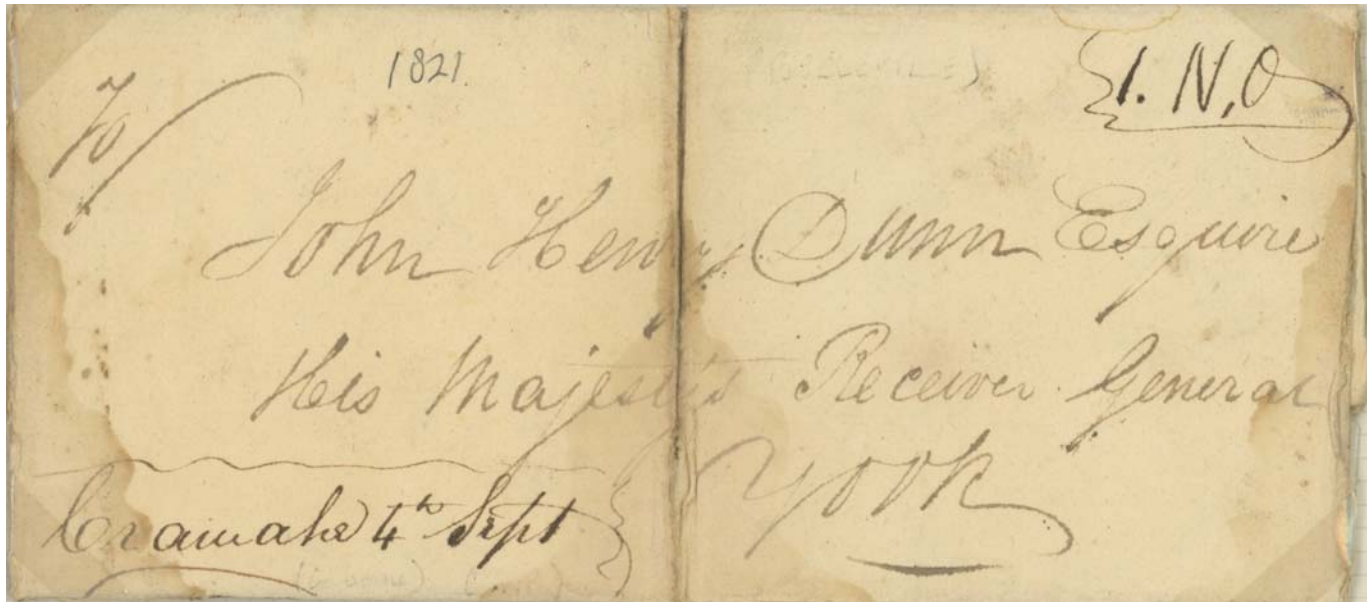 1821.
(BELLEVILLE)
1. N, O
To
John Henry Dunn Esquire
His Majesty's Receiver General
York
Cramahe 4th Sept